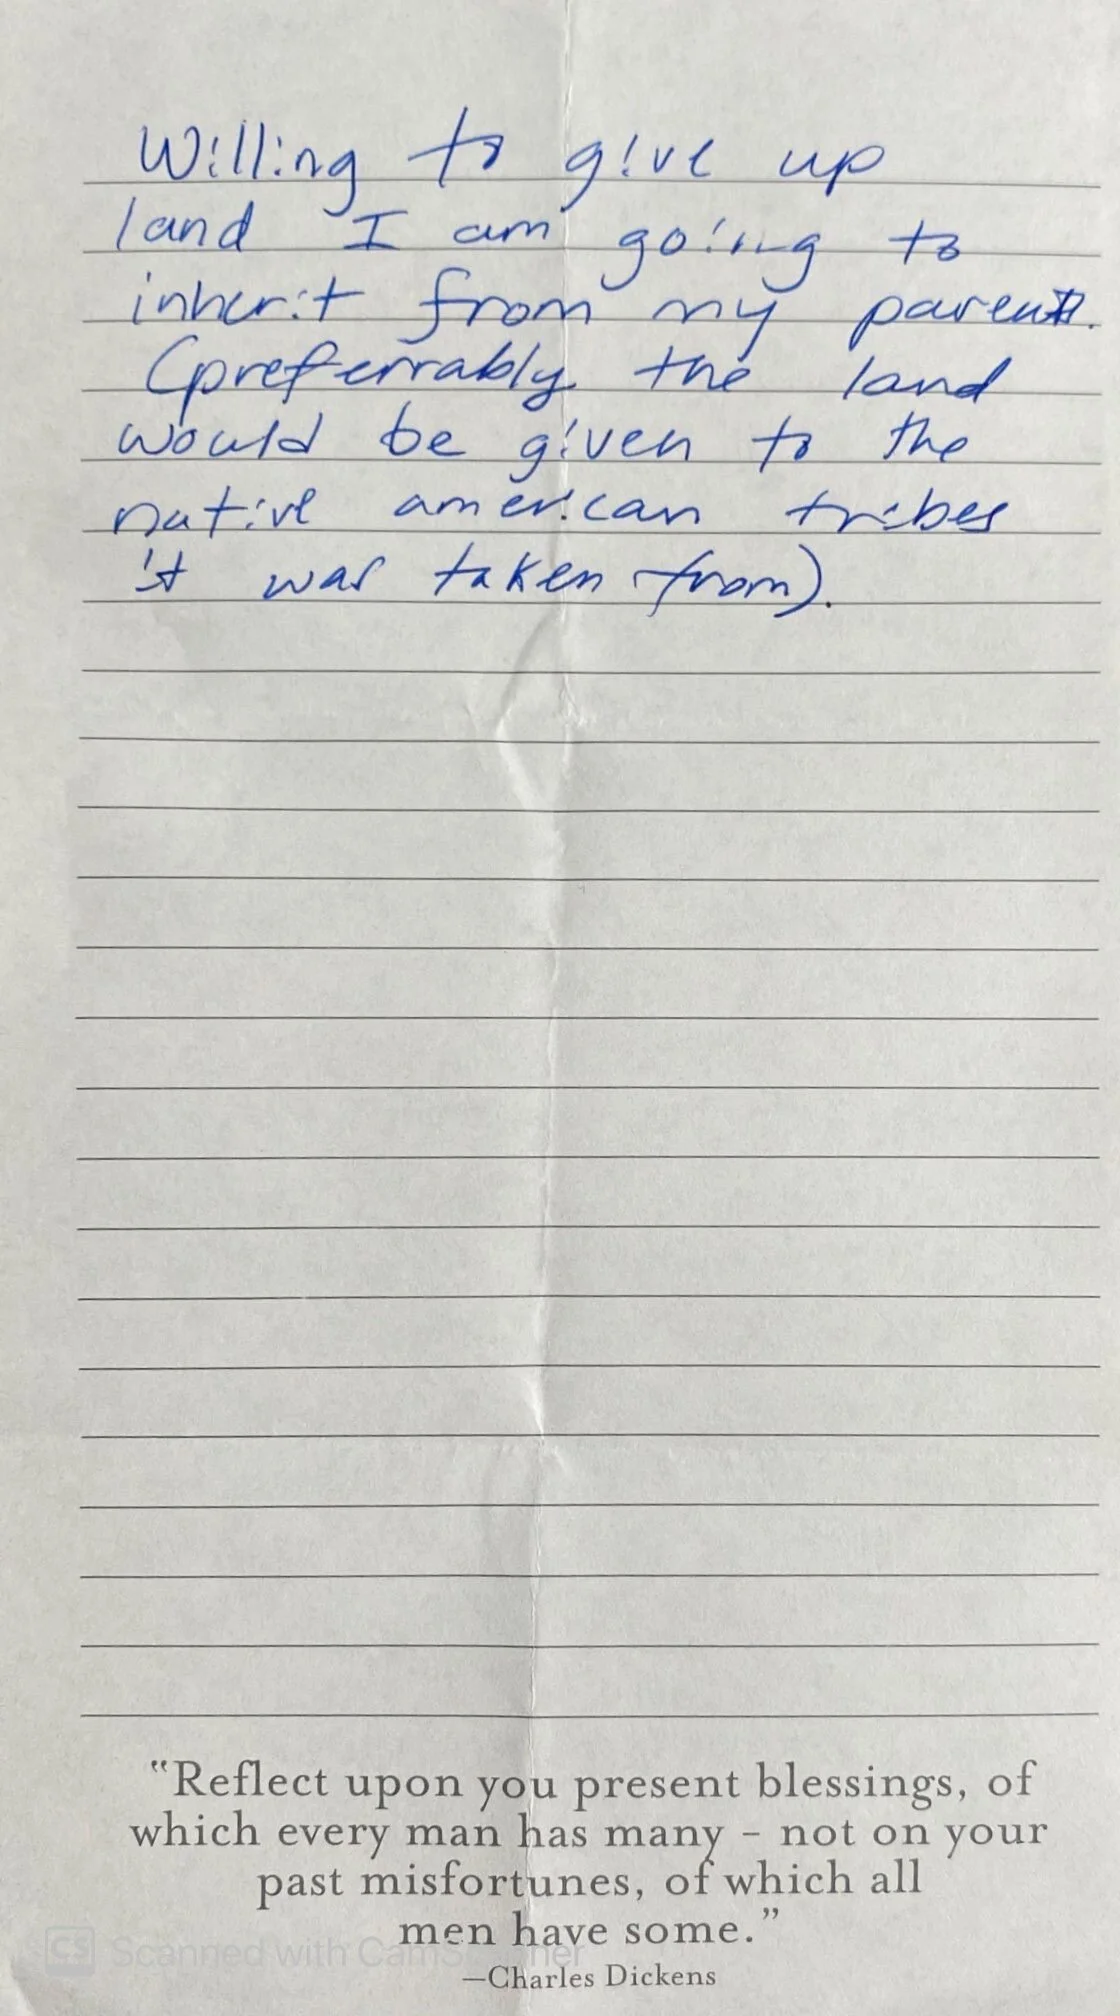 Willing to give up
land I am going to
inherit from my parents.
(preferrably the land
would be given to the
native american tribes
it was taken from).
"Reflect upon you present blessings, of
which every man has many - not on your
past misfortunes, of which all
men have some."
—Charles Dickens
CS Scanned with CamScanner